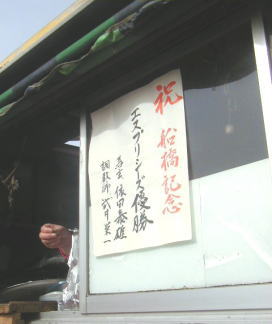 祝 船橋記念
エスプリシーズ優勝
馬主 依田泰雄
調教師 武井栄一